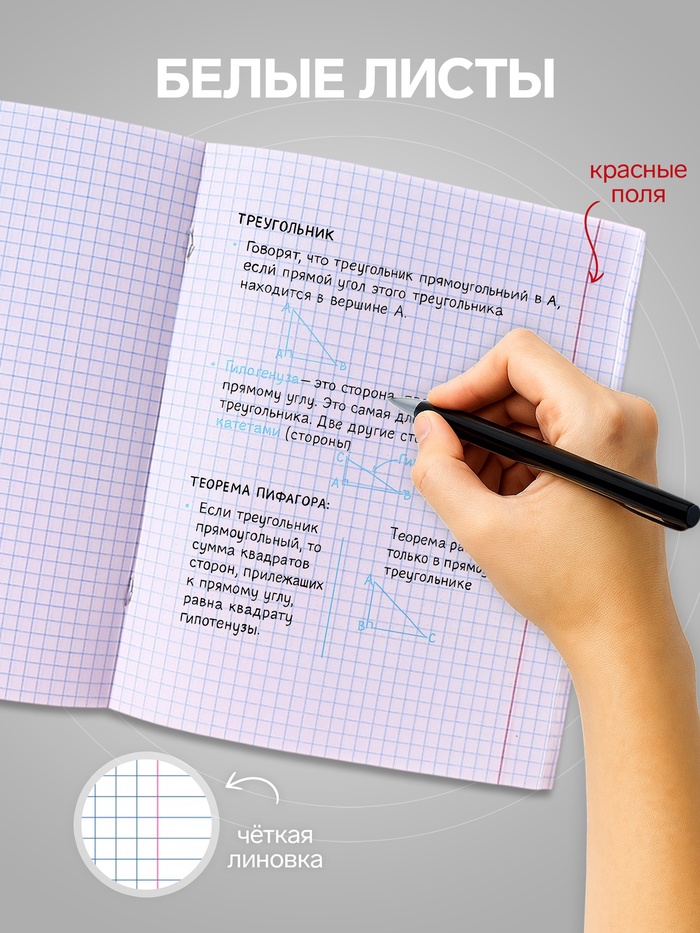 БЕЛЫЕ ЛИСТЫ
красные
поля
ТРЕУГОЛЬНИК
Говорят, что треугольник прямоугольный в А,
если прямой угол этого треугольника
находится в вершине А.
A
A
B
Гипотенуза — это сторона
прямому углу. Это самая
треугольника. Две другие
катетами (стороны
C
A
B
ТЕОРЕМА ПИФАГОРА:
Если треугольник
прямоугольный, то
сумма квадратов
сторон, прилежащих
к прямому углу,
равна квадрату
гипотенузы.
Теорема
только в
треугольнике
A
B
C
чёткая
линовка